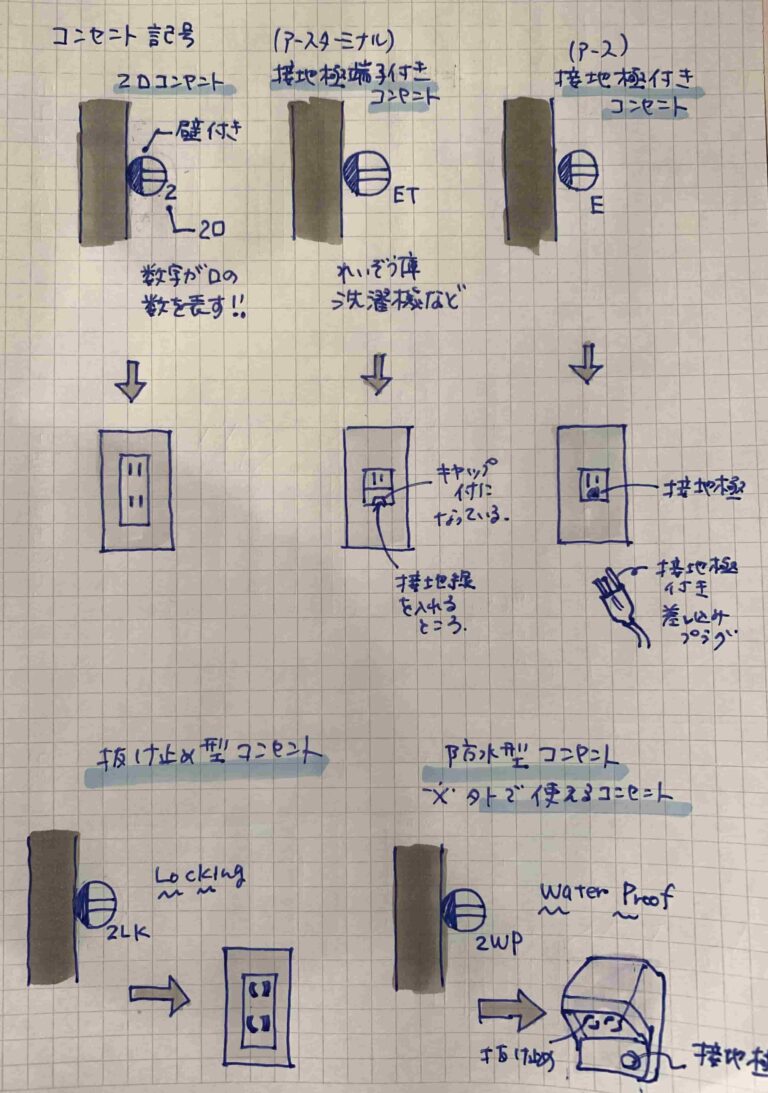 コンセント記号
2口コンセント
壁付き
2
2口
数字が口の
数を表す!!
(アースターミナル)
接地極端子付き
コンセント
ET
れいぞう庫
洗濯機など
(アース)
接地極付き
コンセント
E
キャップ
付に
なっている.
接地線
を入れる
ところ.
接地極
接地極
付き
差し込み
プラグ
抜け止め型コンセント
Locking
2LK
防水型コンセント
※外で使えるコンセント
Water Proof
2WP
抜け止め
接地極